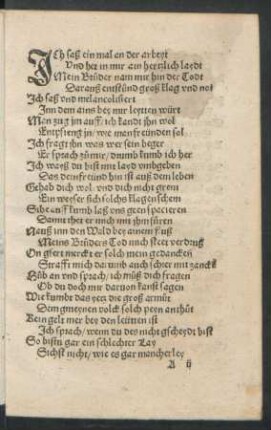 ICh saß ein mal an der arbeyt
Vnd het in mir ain hertzlich laydt
Mein Brůder nam mir hin der Todt
Darauß entstůnd groß klag vnd not
Ich saß vnd melancolisiert
Inn dem ains bey mir leytten würt
Man zug jm auff / ich kandt jhn wol
Entpfieng jn / wie man freunden sol
Ich fragt jhn was wer sein beger
Er sprach zů mir / drumb kumb ich her
Ich wayß du bist mit layd vmbgeben
Das dein freund hin ist auß dem leben
Gehab dich wol vnd dich nicht grem
Ein weyser sich solchs klagens schem
Steh auff kumb laß vns gern spacieren
Damit thet er mich mit jhm füren
Nauß inn den Wald bey ainem fluß
Meins Brůders Tod mich steet verdruß
On gfert merckt er solch mein gedancken
Strafft mich darumb auch schier mit zanckē
Hůb an vnd sprach / ich můß dich fragen
Ob du doch mir daruon kanst sagen
Wie kumbt das yetz die groß armůt
Dem gmeynen volck solch peyn anthůt
Kein gelt mer bey den leütten ist
Ich sprach / wenn du des nicht gscheydt bist
So bistu gar ein schlechter Lay
Sichst nicht / wie es gar mancherley
A ij